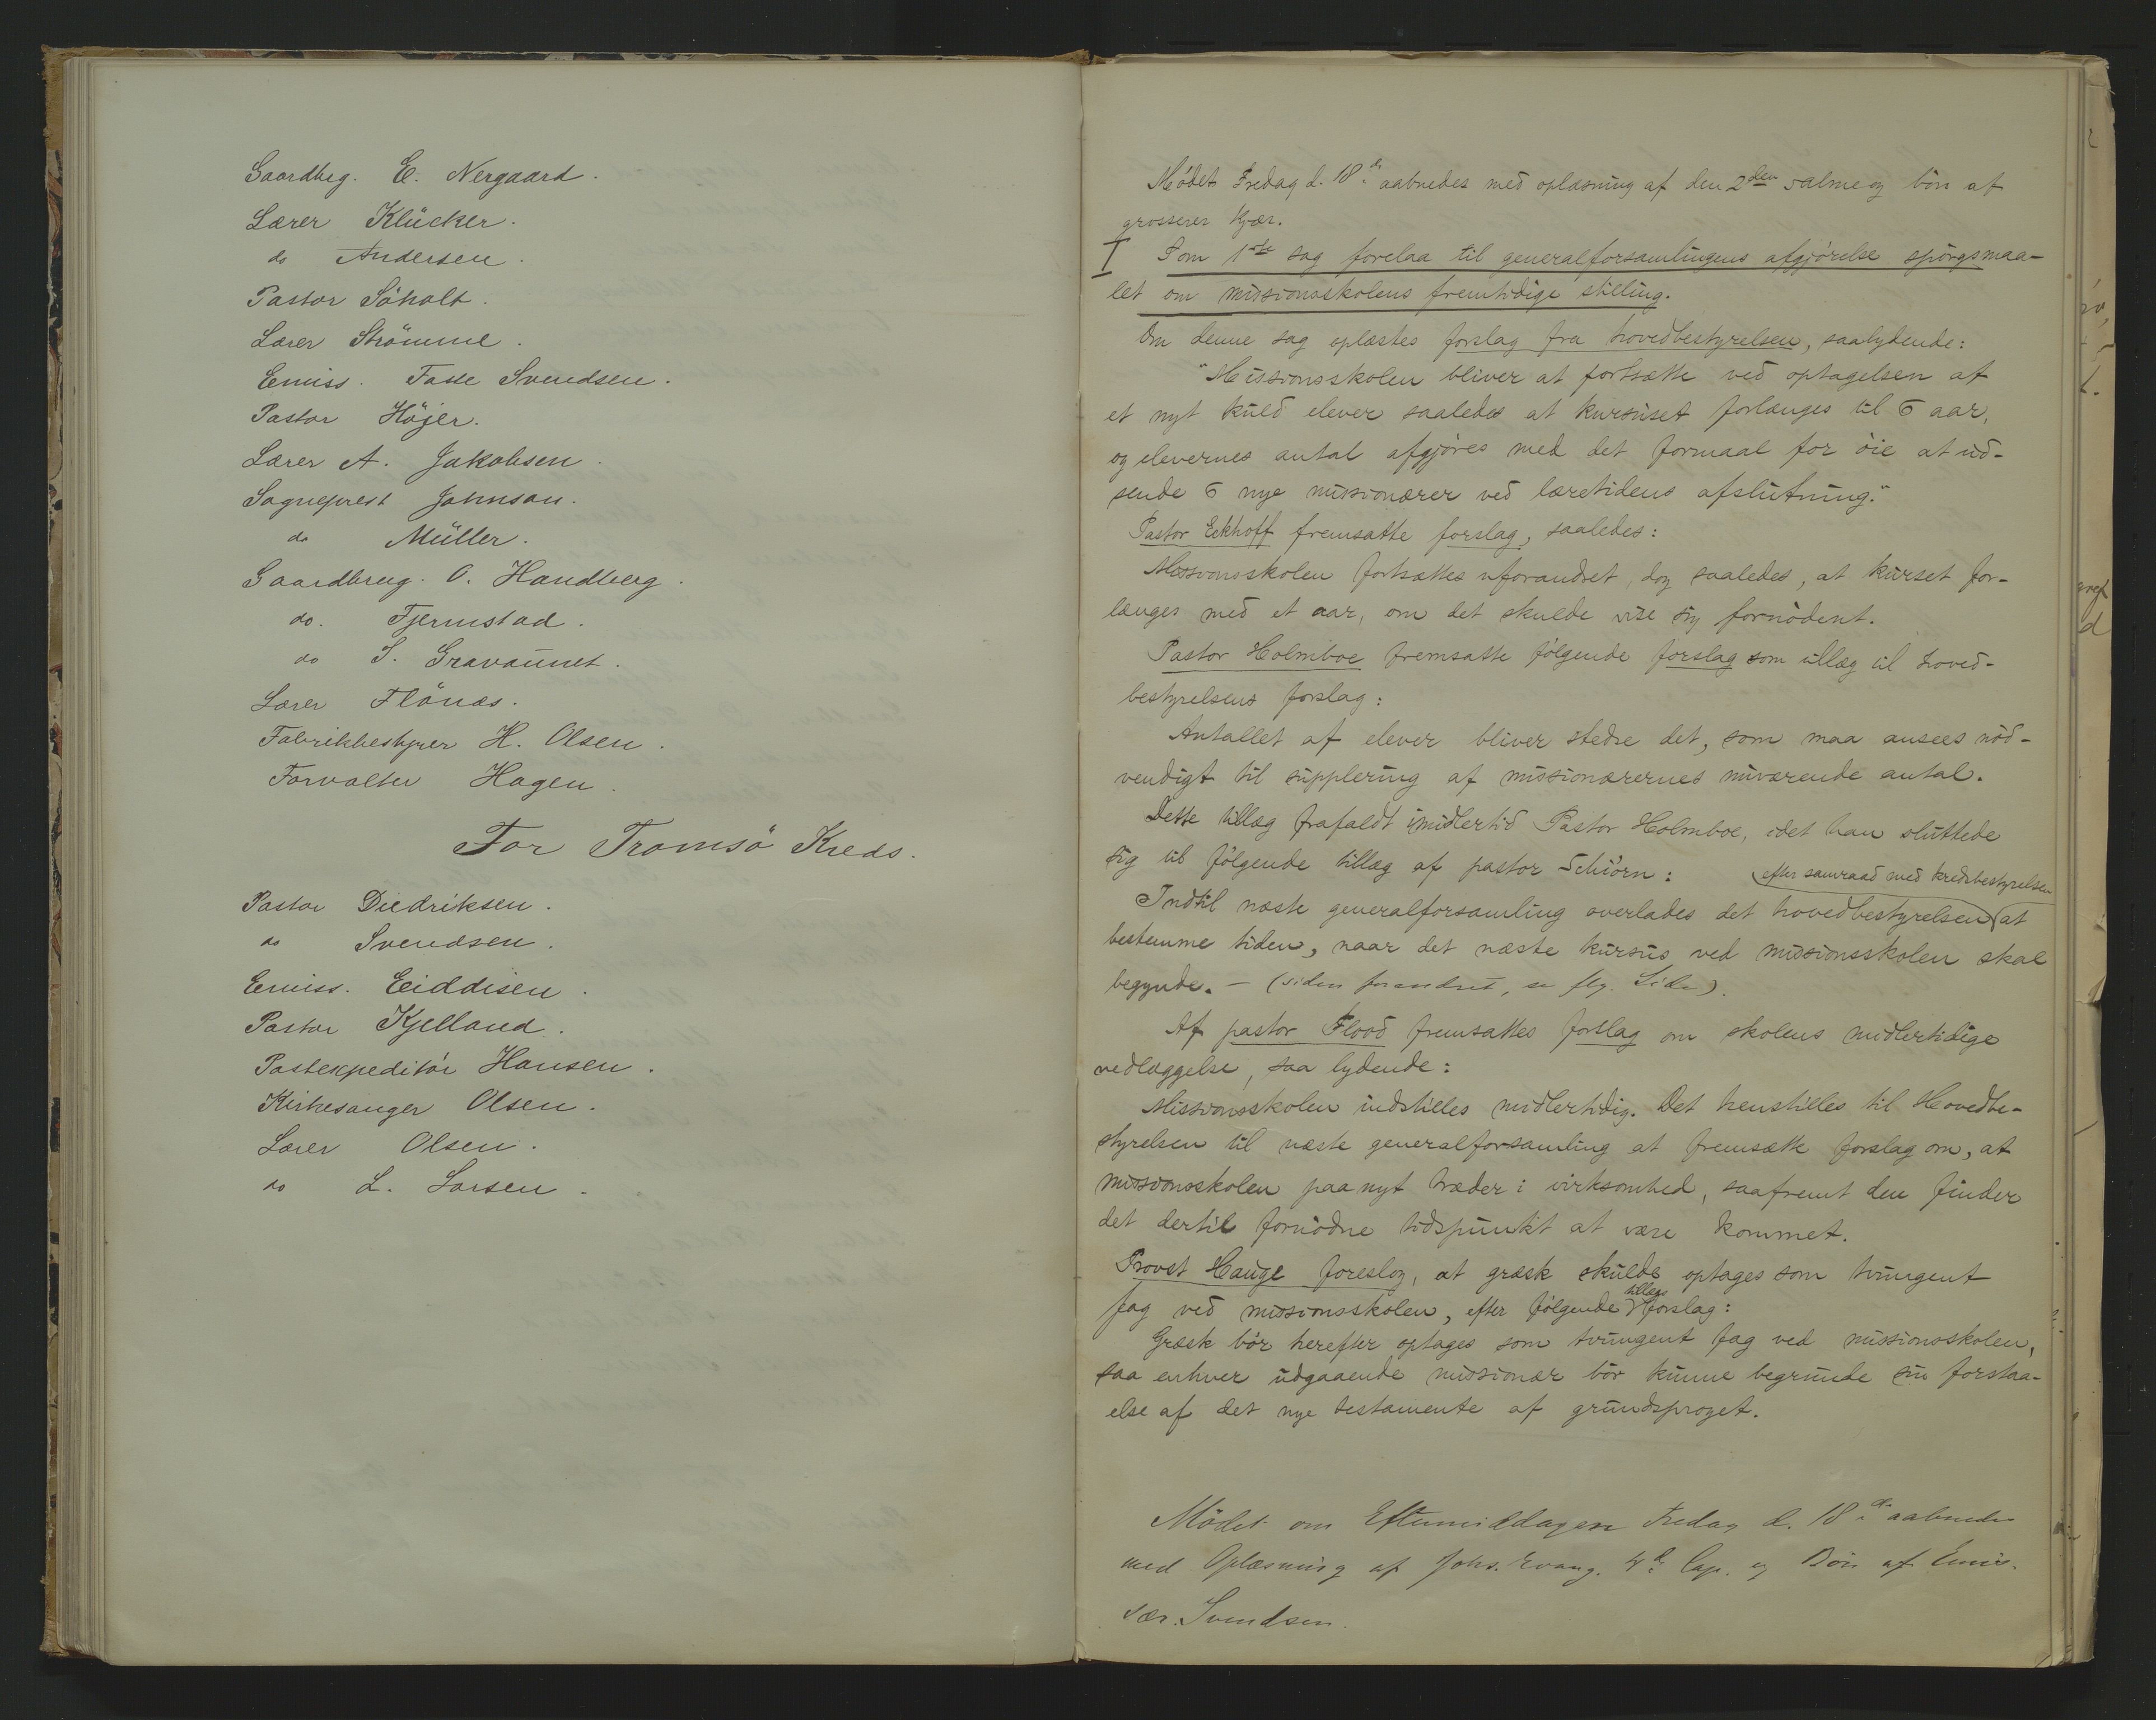 Gaardbrg. E. Nergaard.
Lærer Klücker.
do Andersen.
Pastor Söholt.
Lærer Strömme.
Emiss. Tasse Svendsen.
Pastor Höjer.
Lærer A. Jakobsen.
Sogneprest Johnson.
do Müller.
Gaardbrug. O. Handberg.
do. Fjermstad.
do S. Gravaunet.
Lærer Flönæs.
Fabrikbestyrer H. Olsen.
Forvalter Hagen.
For Tromsö Kreds.
Pastor Diedriksen.
do Svendsen.
Emiss. Eiddisen.
Pastor Kjelland.
Postexpeditör Hansen.
Kirkesanger Olsen.
Lærer Olsen.
do L. Larsen.
Mödet Fredag d. 18de aabnedes med oplæsning af den 2den salme og bön af
grosserer Kjær.
I Som 1ste sag forelaa til generalforsamlingens afgjörelse spörgsmaa-
let om missionsskolens fremtidige stilling.
Om denne sag oplæstes forslag fra hovedbestyrelsen, saalydende:
"Missionsskolen bliver at fortsætte ved optagelsen af
et nyt kuld elever saaledes at kursuset forlænges til 6 aar,
og elevernes antal afgjöres med det formaal for öie at ud-
sende 6 nye missionærer ved læretidens afslutning."
Pastor Eckhoff fremsatte forslag, saaledes:
Missionsskolen fortsættes uforandret, dog saaledes, at kurset for-
længes med et aar, om det skulde vise sig fornödent.
Pastor Holmboe fremsatte fölgende forslag som tillæg til hoved-
bestyrelsens forslag:
Antallet af elever bliver stedse det, som maa ansees nöd-
vendigt til supplering af missionærernes nuværende antal.
Dette tillæg frafaldt imidlertid Pastor Holmboe, idet han sluttede
sig til fölgende tillæg af pastor Schiörn:
efter samraad med kredsbestyrelsen
Indtil næste generalforsamling overlades det hovedbestyrelsen at
bestemme tiden, naar det næste kursus ved missionsskolen skal
begynde. – (siden forandret, se flg. Side).
Af pastor Flood fremsattes forslag om skolens midlertidige
nedlæggelse, saa lydende:
Missionsskolen indstilles midlertidig. Det henstilles til Hovedbe-
styrelsen til næste generalforsamling at fremsætte forslag om, at
missionsskolen paa nyt træder i virksomhed, saafremt den finder
det dertil fornödne tidspunkt at være kommet.
Provst Hauge foreslog, at græsk skulde optages som tvungent
fag ved missionsskolen, efter fölgende tillægsforslag:
Græsk bör herefter optages som tvungent fag ved missionsskolen,
saa enhver udgaaende missionær bör kunne begrunde sin forstaa-
else af det nye testamente af grundsproget.
Mödet om Eftermiddagen Fredag d. 18de aabnedes
med Oplæsning af Johs. Evang. 4de Cap. og Bön af Emis-
sær. Svendsen.